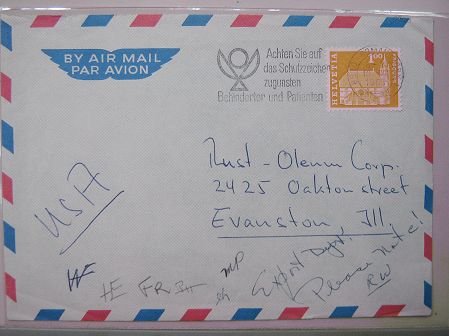 BY AIR MAIL
PAR AVION
Achten Sie auf
das Schutzzeichen
zugunsten
Behinderter und Patienten
1.00
HELVETIA
Rust-Oleum Corp.
2425 Oakton street
Evanston, Ill.
USA
Export Dept.
Please note!
RW
WF
HE FR
MP